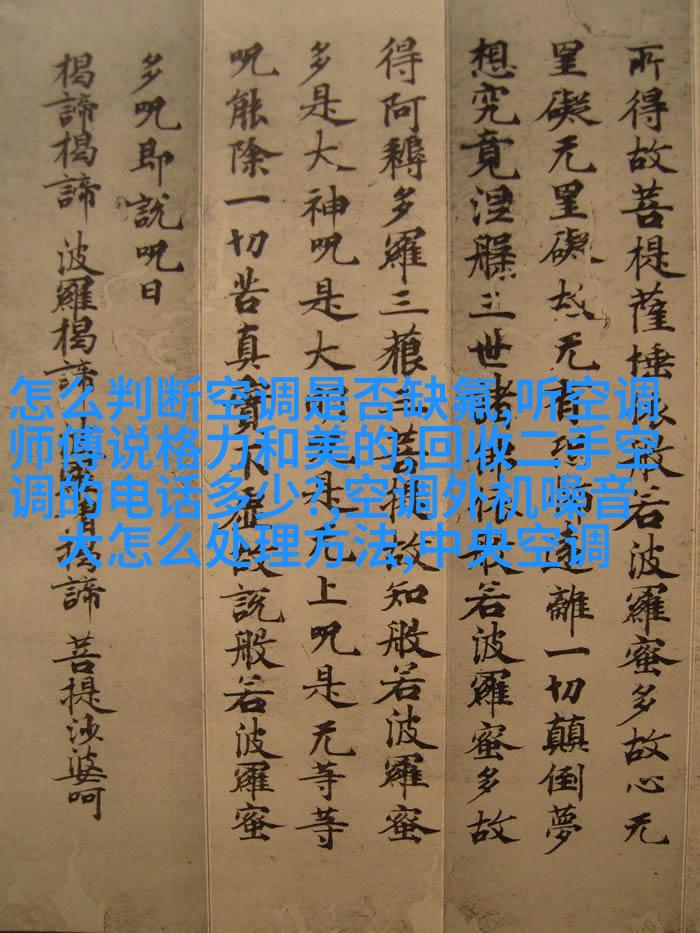 所得故菩提薩埵依般若波羅蜜多故心无
罣礙无罣礙故无有恐怖遠離一切顛倒夢
想究竟涅槃三世諸佛依般若波羅蜜多故
得阿耨多羅三藐三菩提故知般若波羅蜜
多是大神呪是大明呪是无上呪是无等等
呪能除一切苦真實不虛故說般若波羅蜜
多呪即說呪曰
揭諦揭諦 波羅揭諦 波羅僧揭諦 菩提沙婆呵
怎么判断空调是否缺氟,听空调
师傅说格力和美的,回收二手空
调的电话多少?,空调外机噪音
大怎么处理方法,中央空调